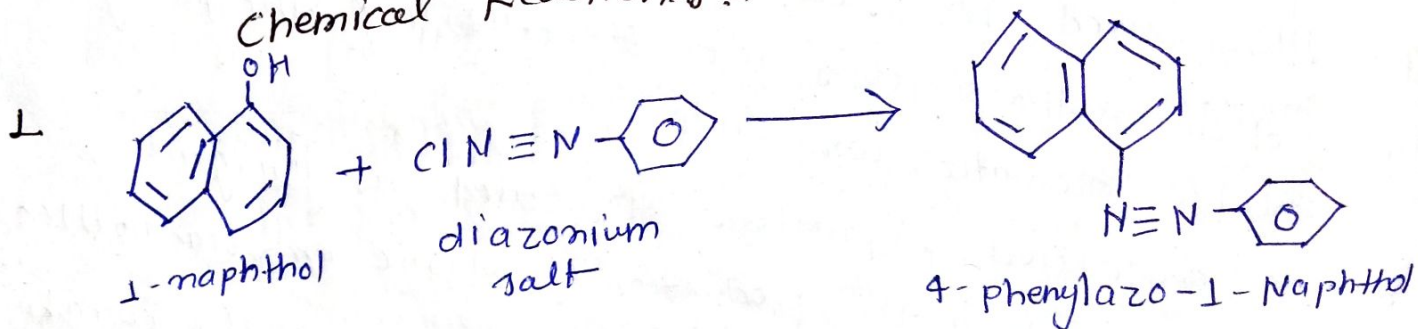 Chemical
OH
1
+ ClN≡N
N≡N
1-naphthol
diazonium
salt
4-phenylazo-1-Naphthol